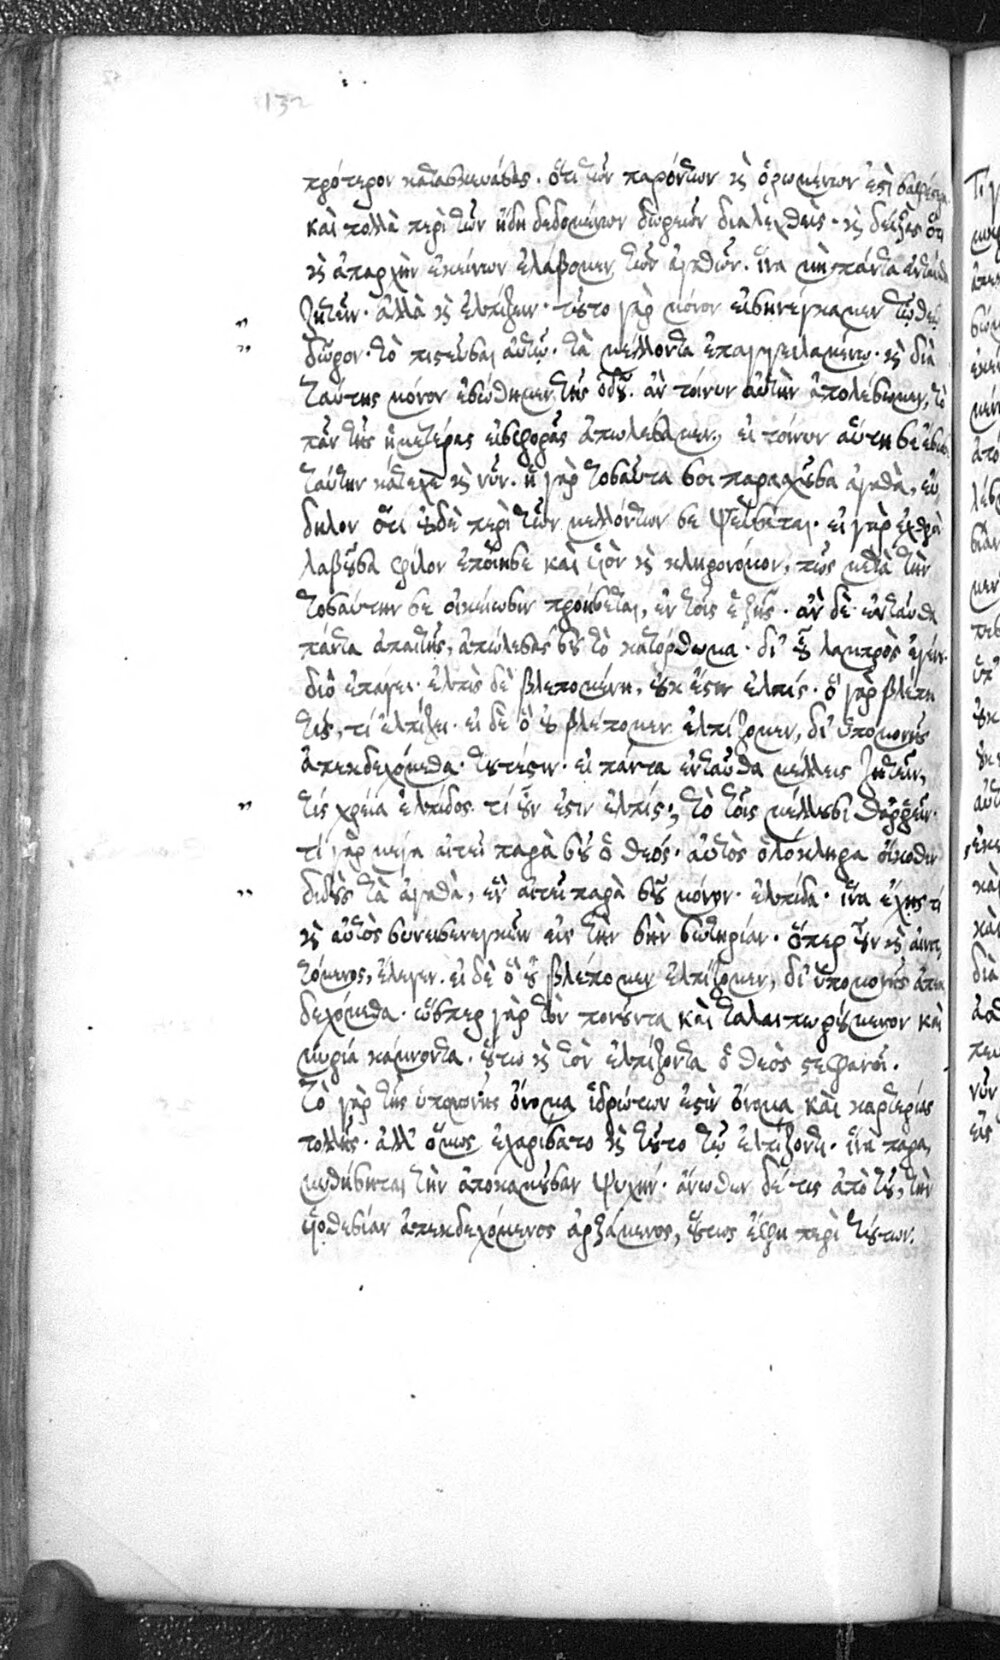 132
πρότερον κατασκευάσας. ὅτι τῶν παρόντων κὶ ὁρωμένων ἐςὶ σαφέστερα
καὶ πολλὰ περὶ τῶν ἤδη δεδομένων δωρεῶν διαλεχθεὶς. κὶ δείξας ὅτι
κὶ ἀπαρχὴν ἐκείνων ἐλάβομεν τῶν ἀγαθῶν. ἵνα μὴ πάντα ἐνταῦθα
ζητῶμεν. ἀλλὰ κὶ ἐλπίζειν. τȣ͂το γὰρ μόνον εἰσηνέγκαμεν τῷ θεῷ
δῶρον. τὸ πιςεῦσαι αὐτῷ. τὰ μέλλοντα ἐπαγγειλαμένῳ. κὶ διὰ
ταύτης μόνον ἐσώθημεν τῆς ὁδȣ͂. ἂν τοίνυν αὐτὴν ἀπολέσωμεν, τὸ
πᾶν τῆς ἡμετέρας εἰσφορᾶς ἀπωλέσαμεν. εἰ τοίνυν αὕτη σε ἔσωσε
ταύτην κάτεχε κὶ νῦν. ἡ γὰρ τοσαῦτα σοι παρασχȣ͂σα ἀγαθὰ, εὔ
δηλον ὅτι ȣ̓δὲ περὶ τῶν μελλόντων σε ψεύσεται. εἰ γὰρ ἐχθρὸν
λαβȣ͂σα φίλον ἐποίησε καὶ υἱὸν κὶ κληρονόμον, πῶς μετὰ τὴν
τοσαύτην σε οἰκείωσιν προήσεται, ἐν τοῖς ἑξῆς. ἂν δὲ ἐνταῦθα
πάντα ἀπαιτῇς, ἀπώλεσάς σȣ τὸ κατόρθωμα. δι' ȣ̔͂ λαμπρὸς ἐγένȣ.
διὸ ἐπάγει. ἐλπὶς δὲ βλεπομένη, ȣ̓κ ἔςιν ἐλπίς. ὃ γὰρ βλέπει
τίς, τί ἐλπίζει. εἰ δὲ ὃ ȣ̓ βλέπομεν ἐλπίζομεν, δι' ὑπομονῆς
ἀπεκδεχόμεθα. τȣτέςιν. εἰ πάντα ἐνταῦθα μέλλεις ζητεῖν,
τίς χρεία ἐλπίδος. τί ȣ̓͂ν ἐςιν ἐλπίς; τὸ τοῖς μέλλȣσι θαῤῥεῖν.
τί γὰρ μέγα αἰτεῖ παρὰ σȣ͂ ὁ θεός. αὐτὸς ὁλόκληρα οἴκοθεν
διδȣ̀ς τὰ ἀγαθὰ, ἓν αἰτεῖ παρὰ σȣ͂ μόνον. ἐλπίδα. ἵνα ἔχῃς τι
κὶ αὐτὸς συνεισενεγκεῖν εἰς τὴν σὴν σωτηρίαν. ὅπερ ȣ̓͂ν κὶ αἰνιτ
τόμενος, ἔλεγεν. εἰ δὲ ὃ ȣ̓ βλέπομεν ἐλπίζομεν, δι' ὑπομονῆς ἀπεκ
δεχόμεθα. ὥσπερ γὰρ τὸν πονȣ͂ντα καὶ ταλαιπωρȣ́μενον καὶ
μυρία κάμνοντα. ȣ̔́τω κὶ τὸν ἐλπίζοντα ὁ θεὸς ςεφανοῖ.
τὸ γὰρ τῆς ὑπομονῆς ὄνομα ἱδρώτων ἐςὶν ὄνομα καὶ καρτερίας
πολλῆς. ἀλλ' ὅμως ἐχαρίσατο κὶ τȣ͂το τῷ ἐλπίζοντι. ἵνα παρα
μυθήσηται τὴν ἀποκαμȣ͂σαν ψυχήν. ἄνωθεν δέ τις ἀπὸ τȣ͂, τὴν
υἱοθεσίαν ἀπεκδεχόμενος ἀρξάμενος, ȣ̔́τως ἔφη περὶ τȣ́των.